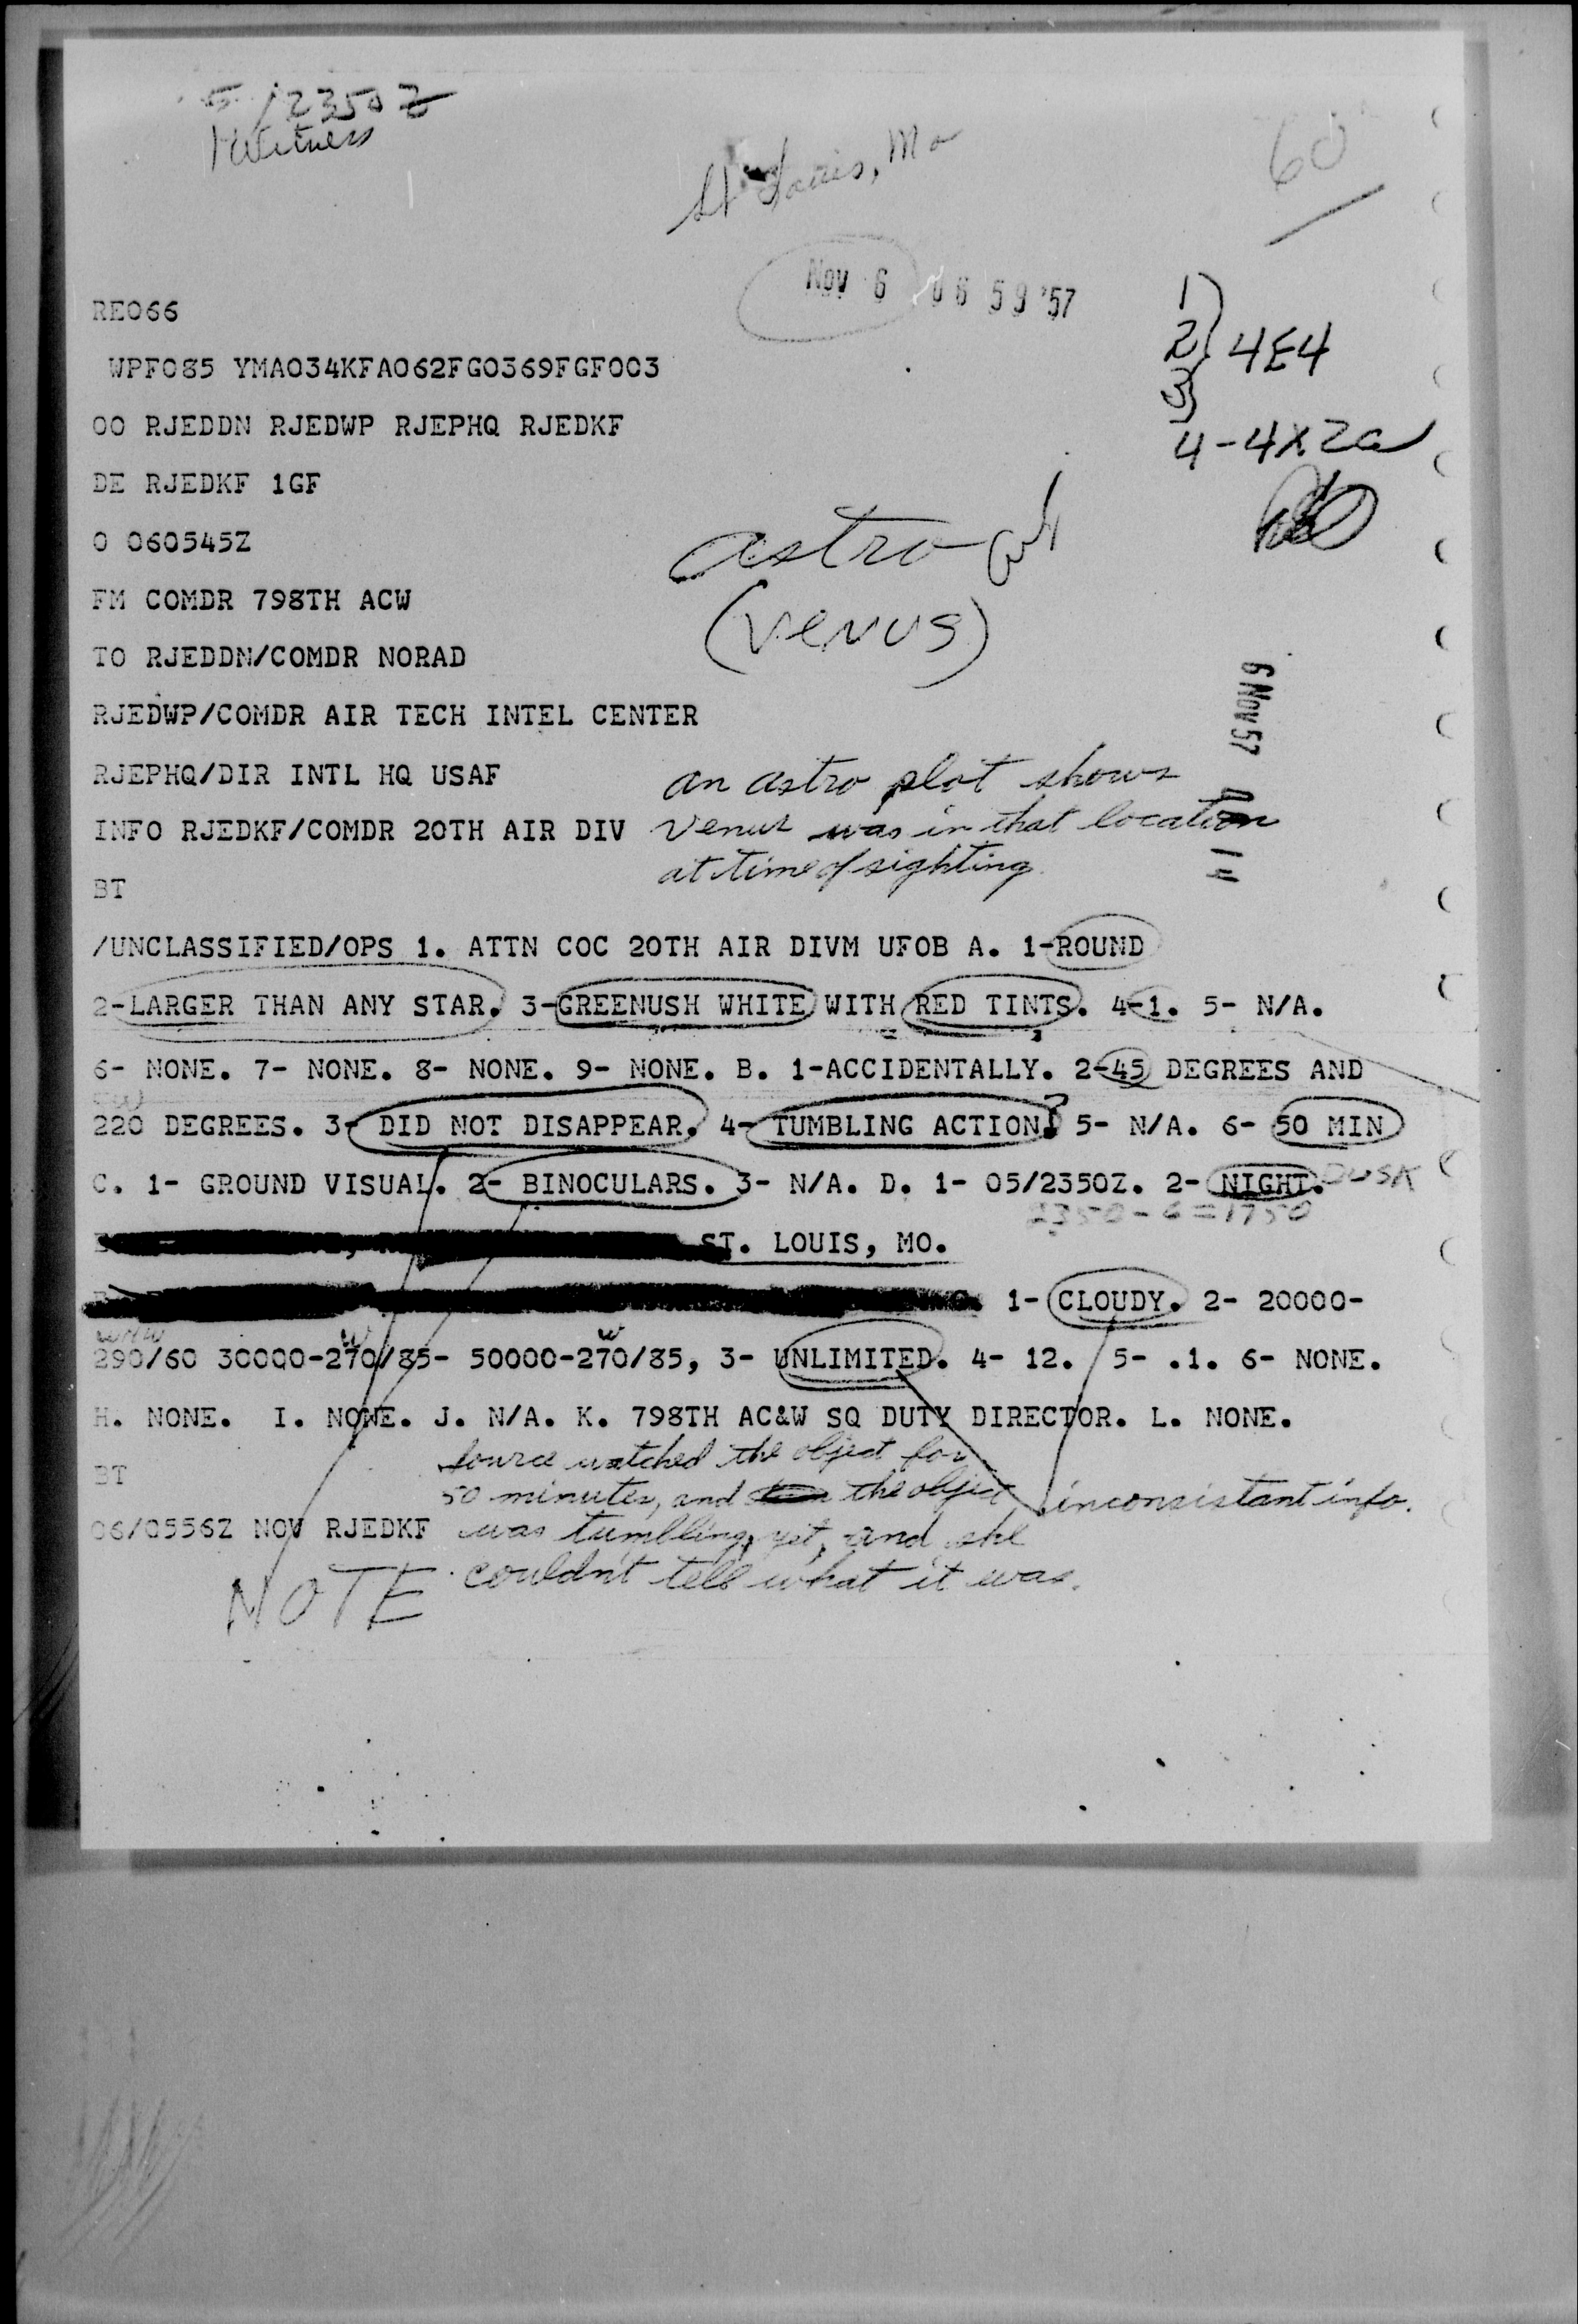 5/2350Z
1 Witness
St Louis, Mo
60
Nov 6 06 59 '57
RE066
WPF085 YMA034KFA062FG0369FGF003
OO RJEDDN RJEDWP RJEPHQ RJEDKF
DE RJEDKF 1GF
O 060545Z
FM COMDR 798TH ACW
TO RJEDDN/COMDR NORAD
RJEDWP/COMDR AIR TECH INTEL CENTER
RJEPHQ/DIR INTL HQ USAF
INFO RJEDKF/COMDR 20TH AIR DIV
BT
1
2 4E4
3
4-4X2a
astro
(Venus)
6 Nov 57
an astro plot shows
Venus was in that location
at time of sighting.
/UNCLASSIFIED/OPS 1. ATTN COC 20TH AIR DIVM UFOB A. 1-ROUND
2-LARGER THAN ANY STAR. 3-GREENUSH WHITE WITH RED TINTS. 4-1. 5- N/A.
6- NONE. 7- NONE. 8- NONE. 9- NONE. B. 1-ACCIDENTALLY. 2-45 DEGREES AND
SW
220 DEGREES. 3- DID NOT DISAPPEAR. 4- TUMBLING ACTION? 5- N/A. 6- 50 MIN
C. 1- GROUND VISUAL. 2- BINOCULARS. 3- N/A. D. 1- 05/2350Z. 2- NIGHT. DUSK
2350-6=1750
ST. LOUIS, MO.
1- CLOUDY. 2- 20000-
WNW W W
290/60 30000-270/85- 50000-270/85, 3- UNLIMITED. 4- 12. 5- .1. 6- NONE.
H. NONE. I. NONE. J. N/A. K. 798TH AC&W SQ DUTY DIRECTOR. L. NONE.
BT
06/0556Z NOV RJEDKF
Source watched the object for
50 minutes, and the object
was tumbling, yet, and she
couldn't tell what it was.
inconsistant info.
NOTE